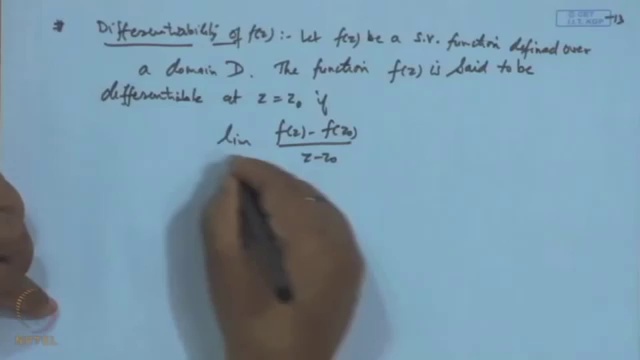 © CET
I.I.T. KGP
-13
* Differentiability of f(z) :- Let f(z) be a s.v. function defined over
a domain D. The function f(z) is said to be
differentiable at z = z₀ if
lim f(z) - f(z₀)
z - z₀
NPTEL